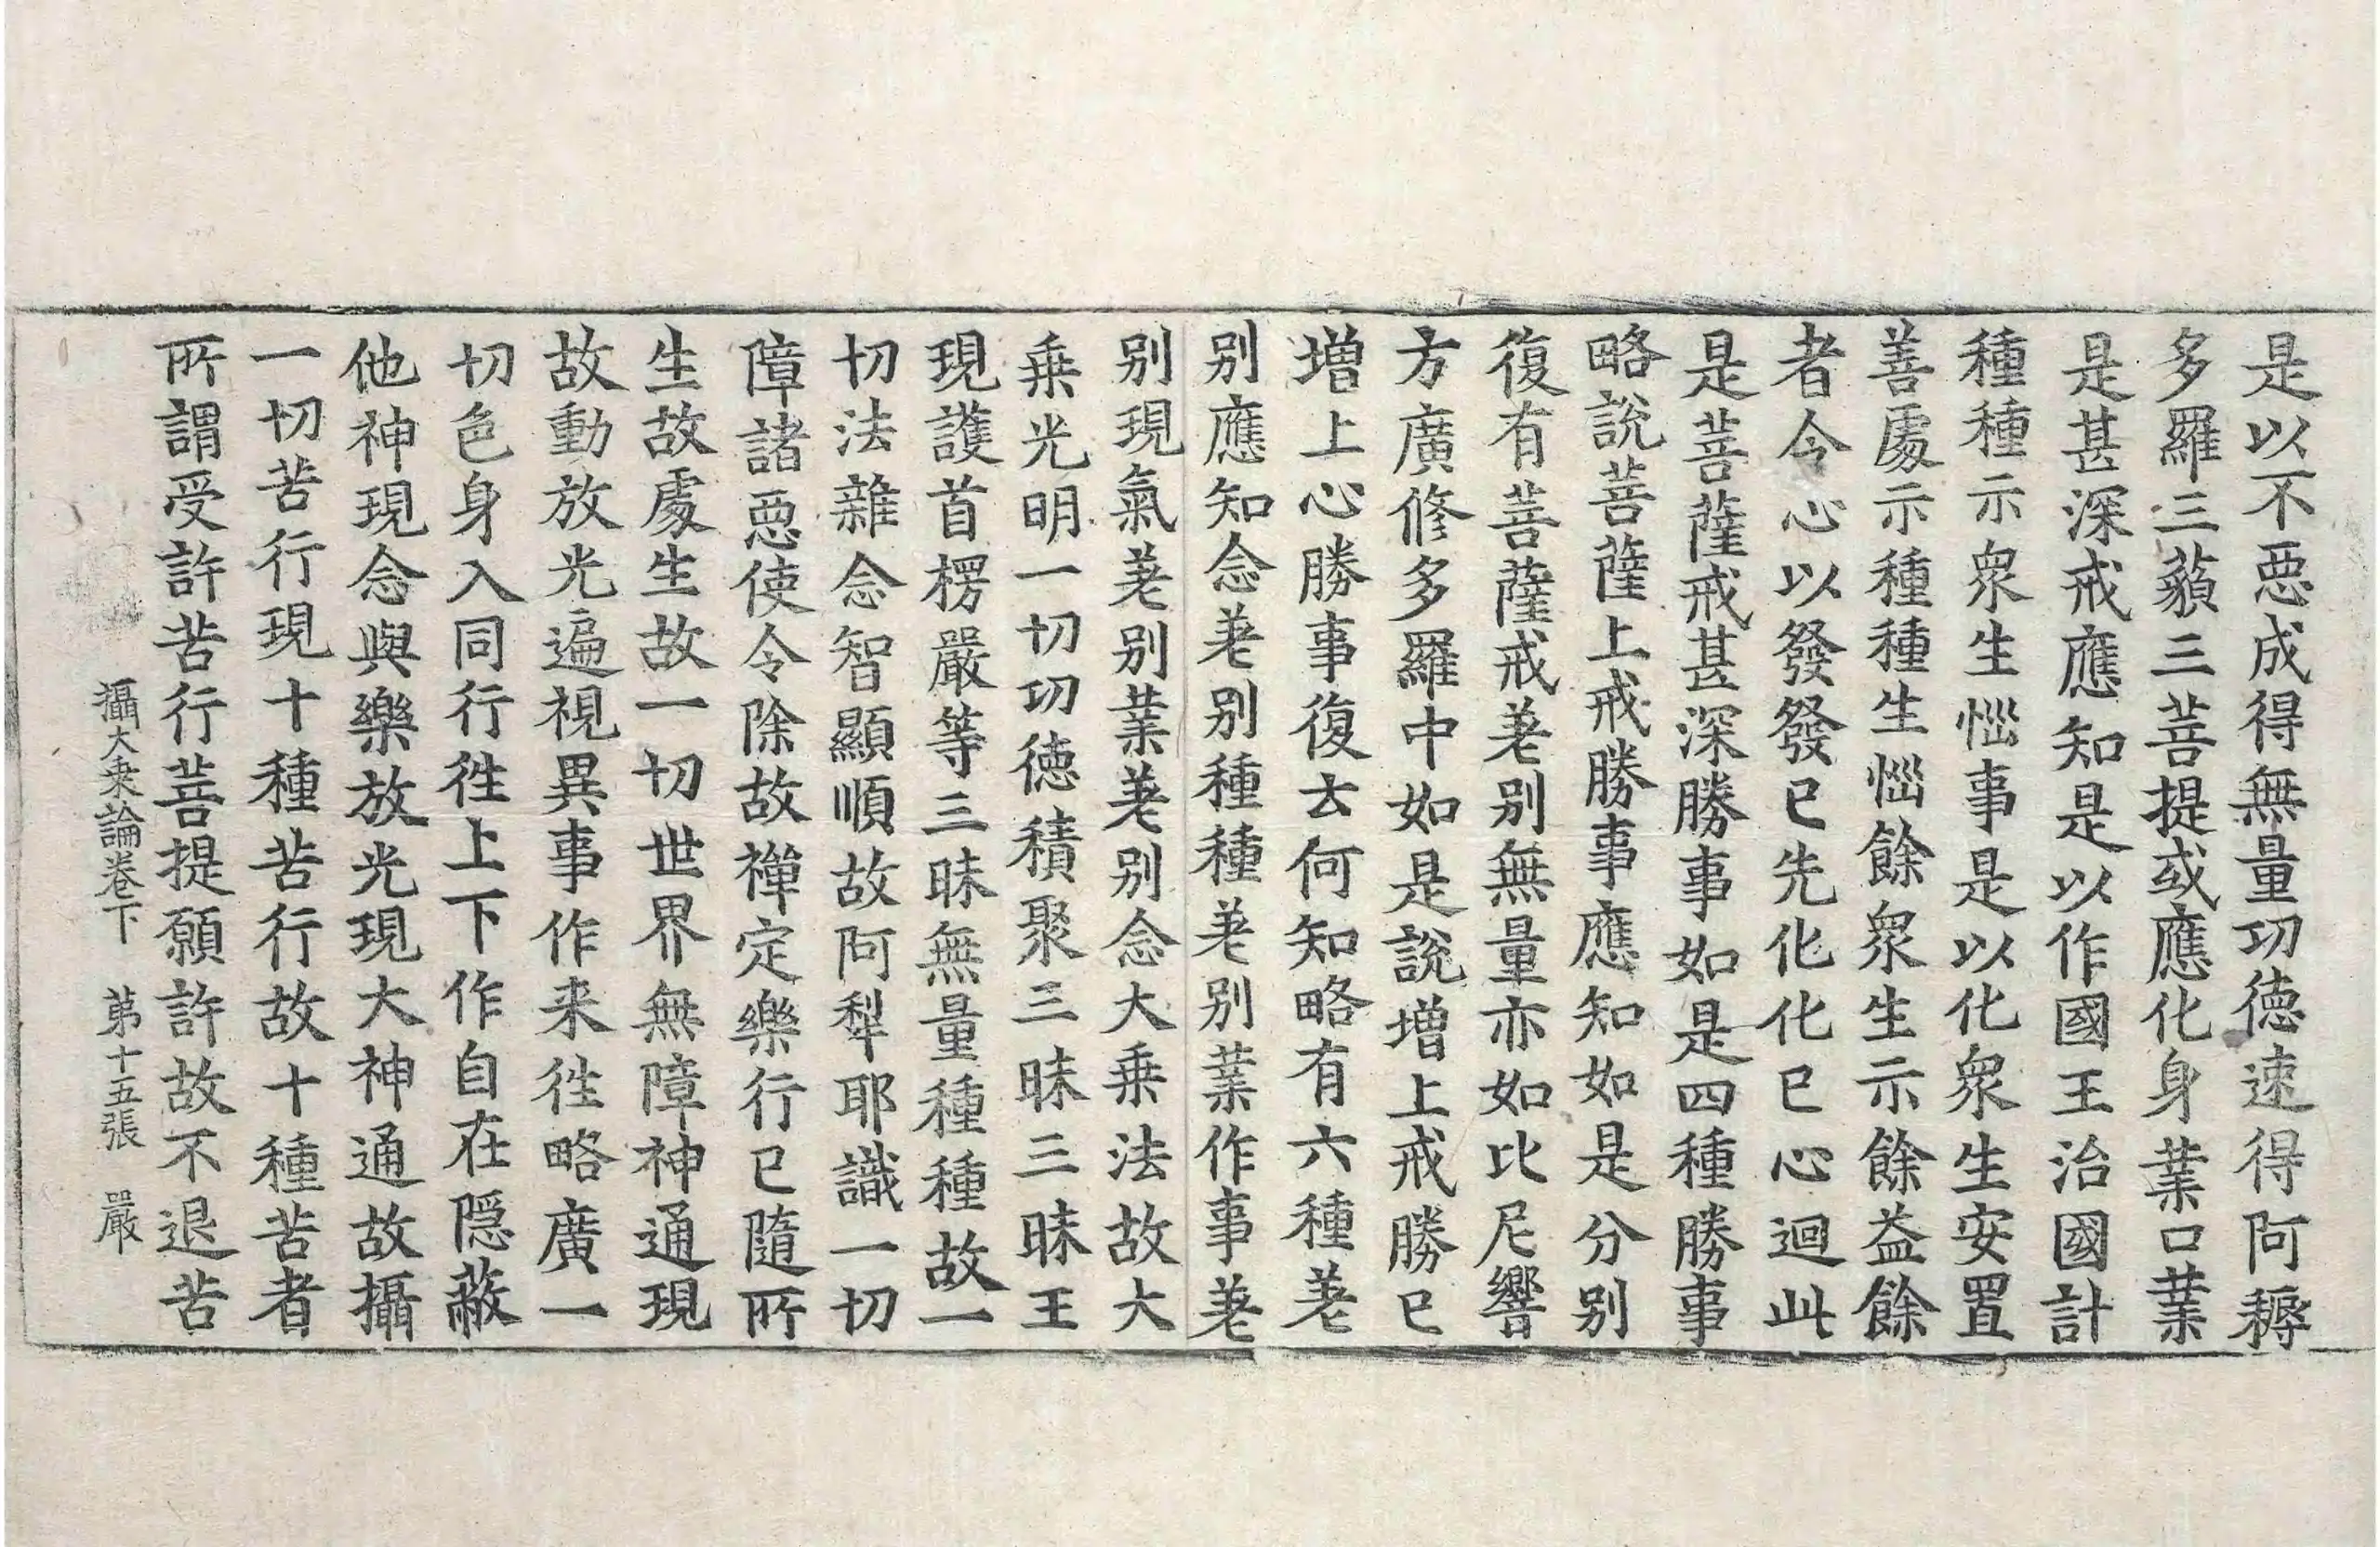 是以不惡成得無量功德速得阿耨
多羅三藐三菩提或應化身業口業
是甚深戒應知是以作國王治國計
種種示衆生惱事是以化衆生安置
善處示種種生惱餘衆生示餘益餘
者令心以發發已先化化已心迴此
是菩薩戒甚深勝事如是四種勝事
略說菩薩上戒勝事應知如是分別
復有菩薩戒差別無量亦如比尼響
方廣修多羅中如是說增上戒勝已
增上心勝事復去何知略有六種差
別應知念差別種種差別業作事差
別現氣差別業差別念大乗法故大
乗光明一切功德積聚三昧三昧王
現護首楞嚴等三昧無量種種故一
切法雜念智顯順故阿犁耶識一切
障諸惡使令除故禪定樂行已隨所
生故處生故一切世界無障神通現
故動放光遍視異事作来徃略廣一
切色身入同行徃上下作自在隱蔽
他神現念與樂放光現大神通故攝
一切苦行現十種苦行故十種苦者
所謂受許苦行菩提願許故不退苦
攝大乗論卷下　第十五張　嚴